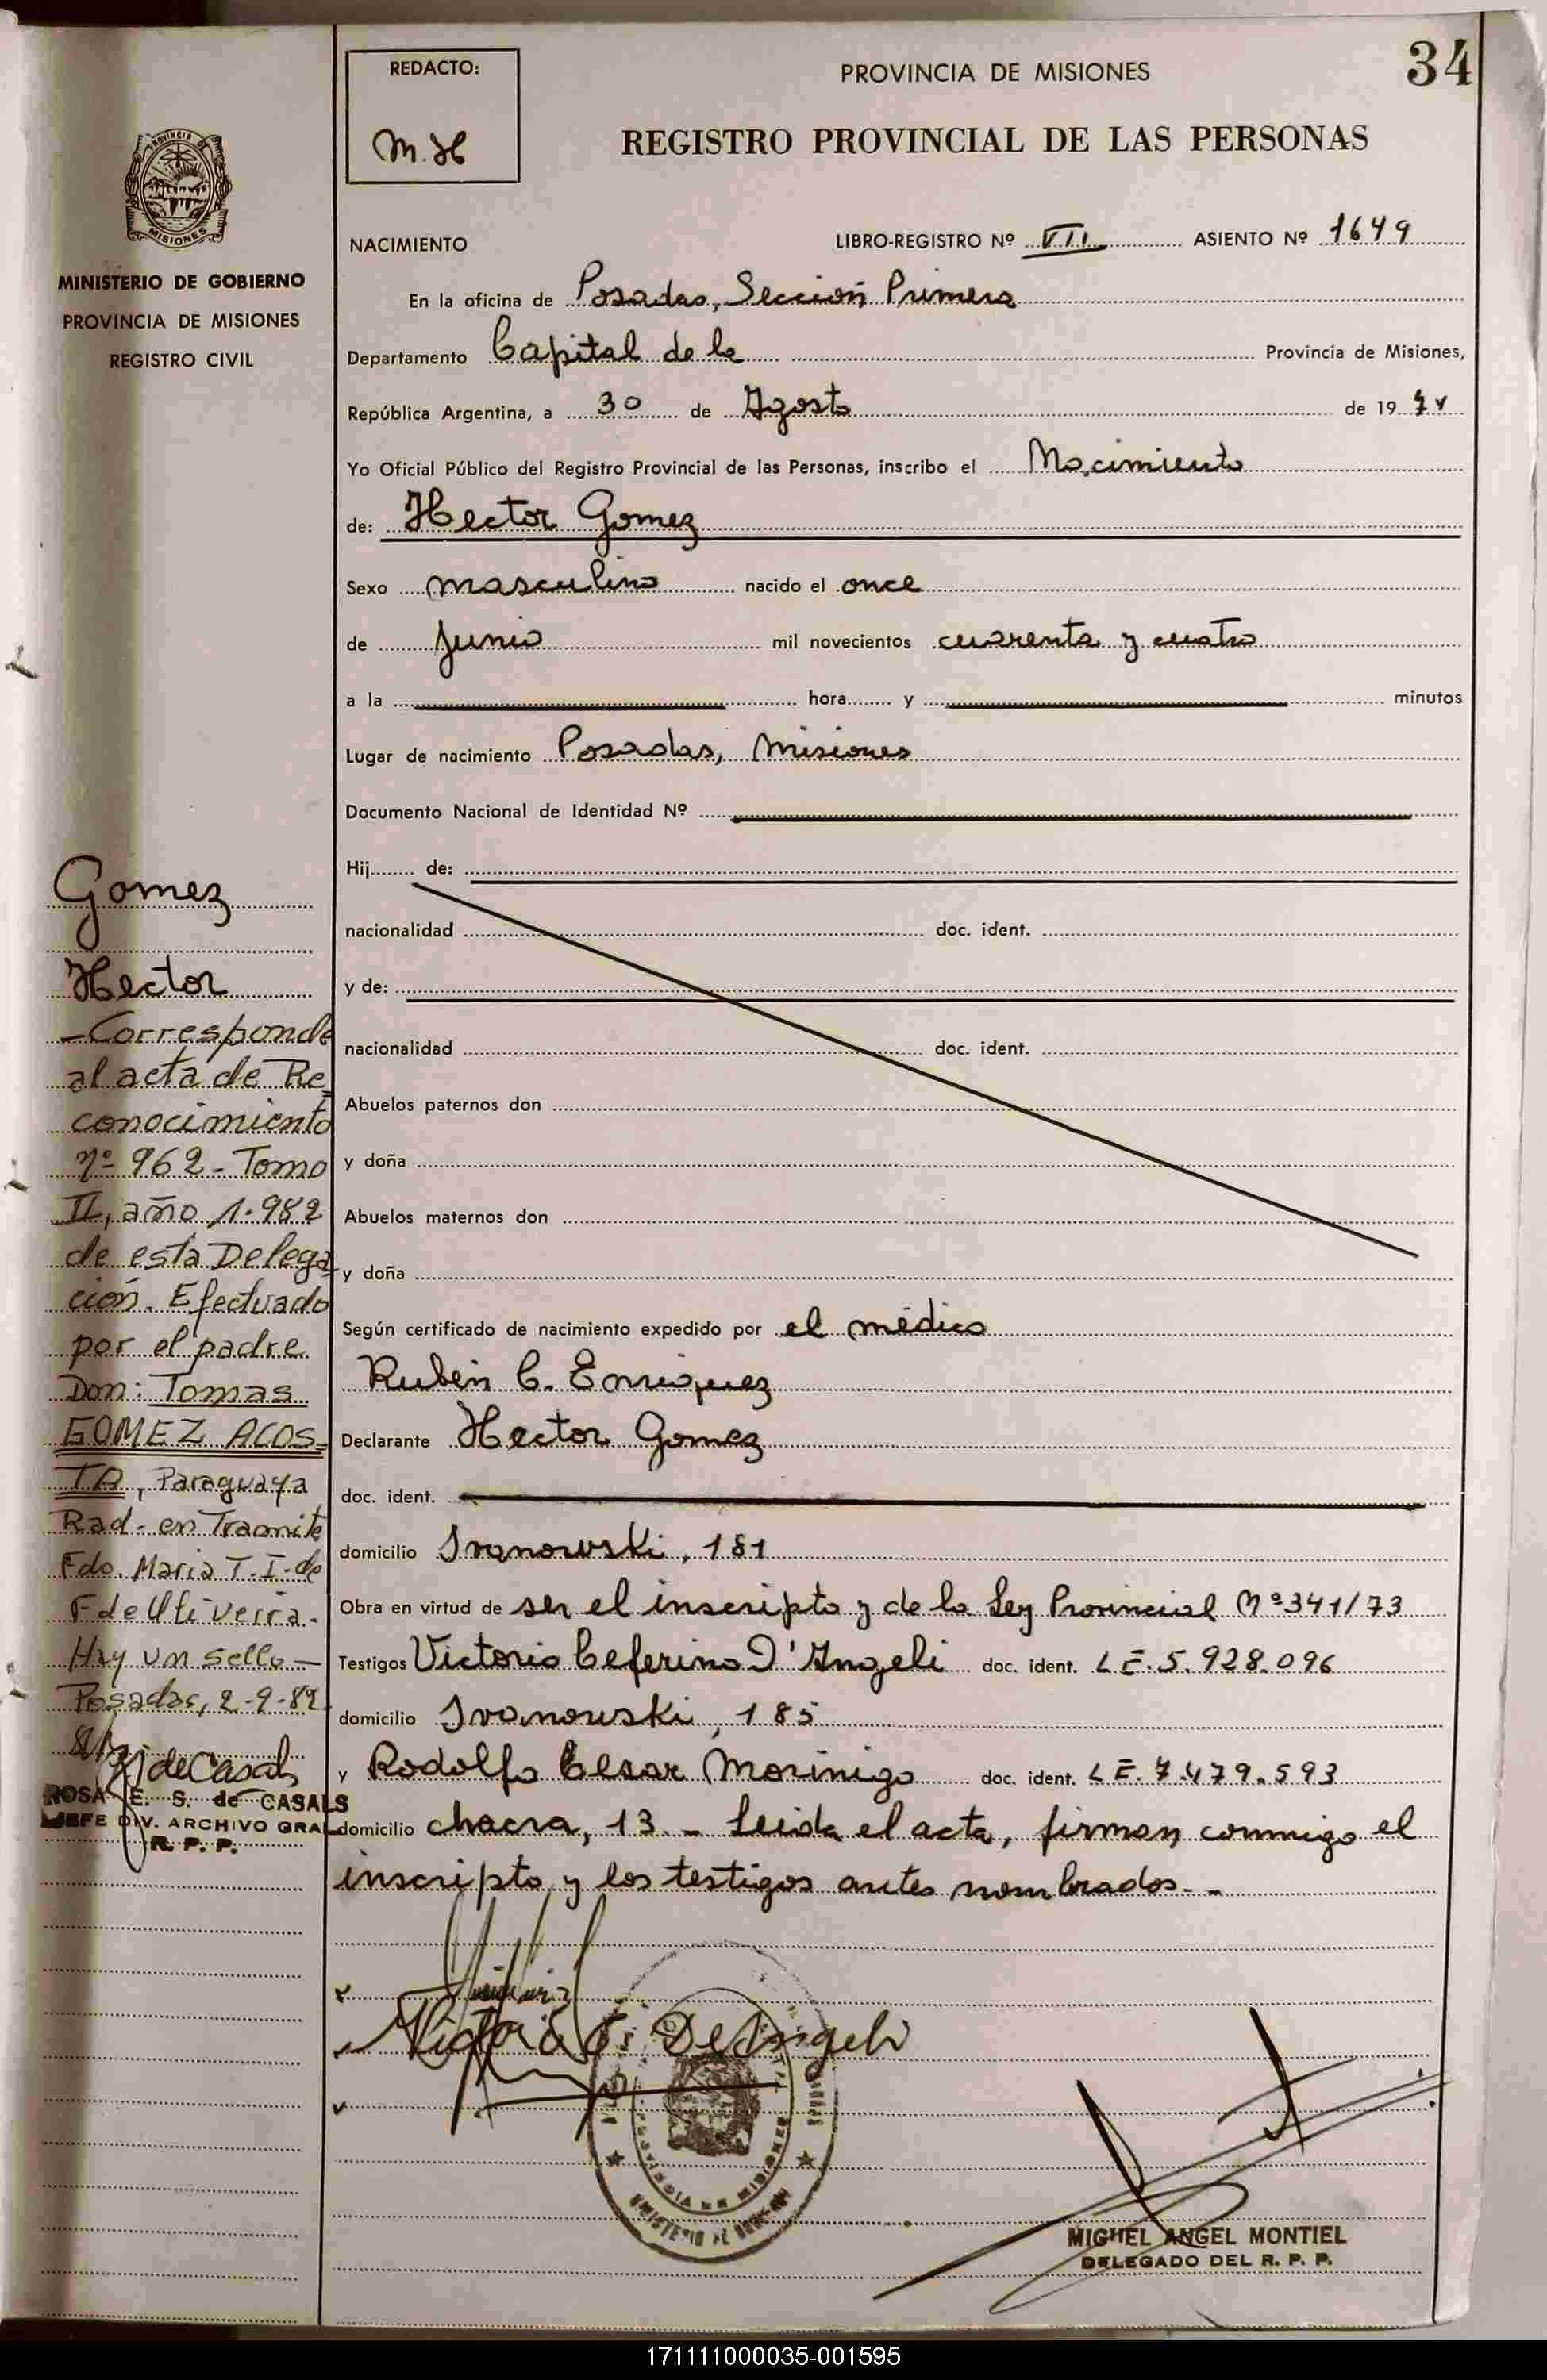 34
REDACTO:
M.H
PROVINCIA DE MISIONES
REGISTRO PROVINCIAL DE LAS PERSONAS
PROVINCIA
MISIONES
MINISTERIO DE GOBIERNO
PROVINCIA DE MISIONES
REGISTRO CIVIL
NACIMIENTO LIBRO-REGISTRO Nº VII ASIENTO Nº 1649
En la oficina de Posadas, Sección Primera
Departamento Capital de la Provincia de Misiones,
República Argentina, a 30 de Agosto de 19
Yo Oficial Público del Registro Provincial de las Personas, inscribo el Nacimiento
de: Hector Gomez
Sexo masculino nacido el once
de Junio mil novecientos cuarenta y cuatro
a la hora y minutos
Lugar de nacimiento Posadas, Misiones
Documento Nacional de Identidad Nº
Hij de:
nacionalidad doc. ident.
y de:
nacionalidad doc. ident.
Abuelos paternos don
y doña
Abuelos maternos don
y doña
Según certificado de nacimiento expedido por el médico
Rubén C. Enriquez
Declarante Hector Gomez
doc. ident.
domicilio Ivanowski, 181
Obra en virtud de ser el inscripto y de la Ley Provincial Nº 341/73
Testigos Victorio Ceferino D'Angeli doc. ident. L E. 5.928.096
domicilio Ivanowski, 185
y Rodolfo Cesar Morinigo doc. ident. L E. 7.479.593
domicilio chacra, 13. - Leida el acta, firman conmigo el
inscripto y los testigos antes nombrados. -
Gomez
Hector
- Corresponde
al acta de Re
conocimiento
nº 962 - Tomo
II, año 1.982
de esta Delega
ción. Efectuado
por el padre
Don: Tomas
GOMEZ ACOS=
TA, Paraguaya
Rad. en Tramite
Fdo. Maria T. I. de
Hay un sello -
Posadas, 2-9-82
de Casals
ROSA E. S. de CASALS
JEFE DIV. ARCHIVO GRAL
R. P. P.
De Angeli
MIGUEL ANGEL MONTIEL
DELEGADO DEL R. P. P.
171111000035-001595